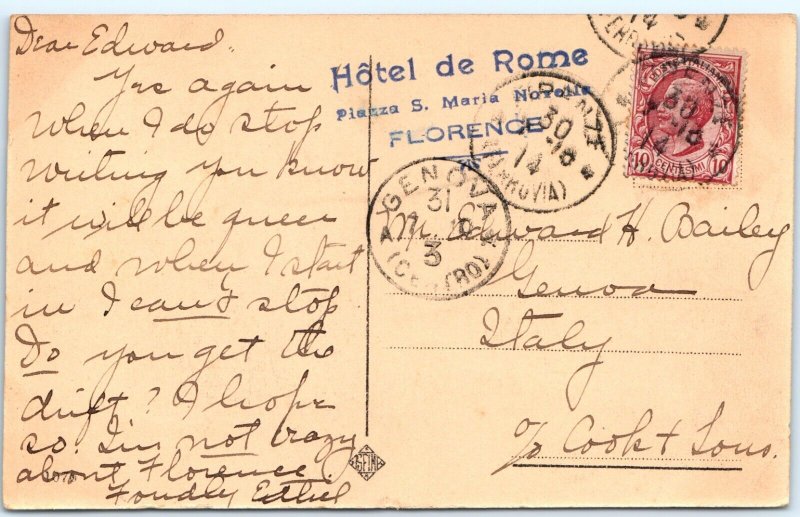 Dear Edward,
Yes again
when I do stop
writing you know
it will be queer
and when I start
in I can't stop
Do you get the
drift? I hope
so. I'm not crazy
about Florence.
Fondly Ethel
Hôtel de Rome
Piazza S. Maria Novella
FLORENCE
30
14
(FERROVIA)
GENOVA
31
3
(CENTRO)
10 CENTESIMI 10
Mr. Edward H. Bailey
Genoa
Italy
c/o Cook & Sons.